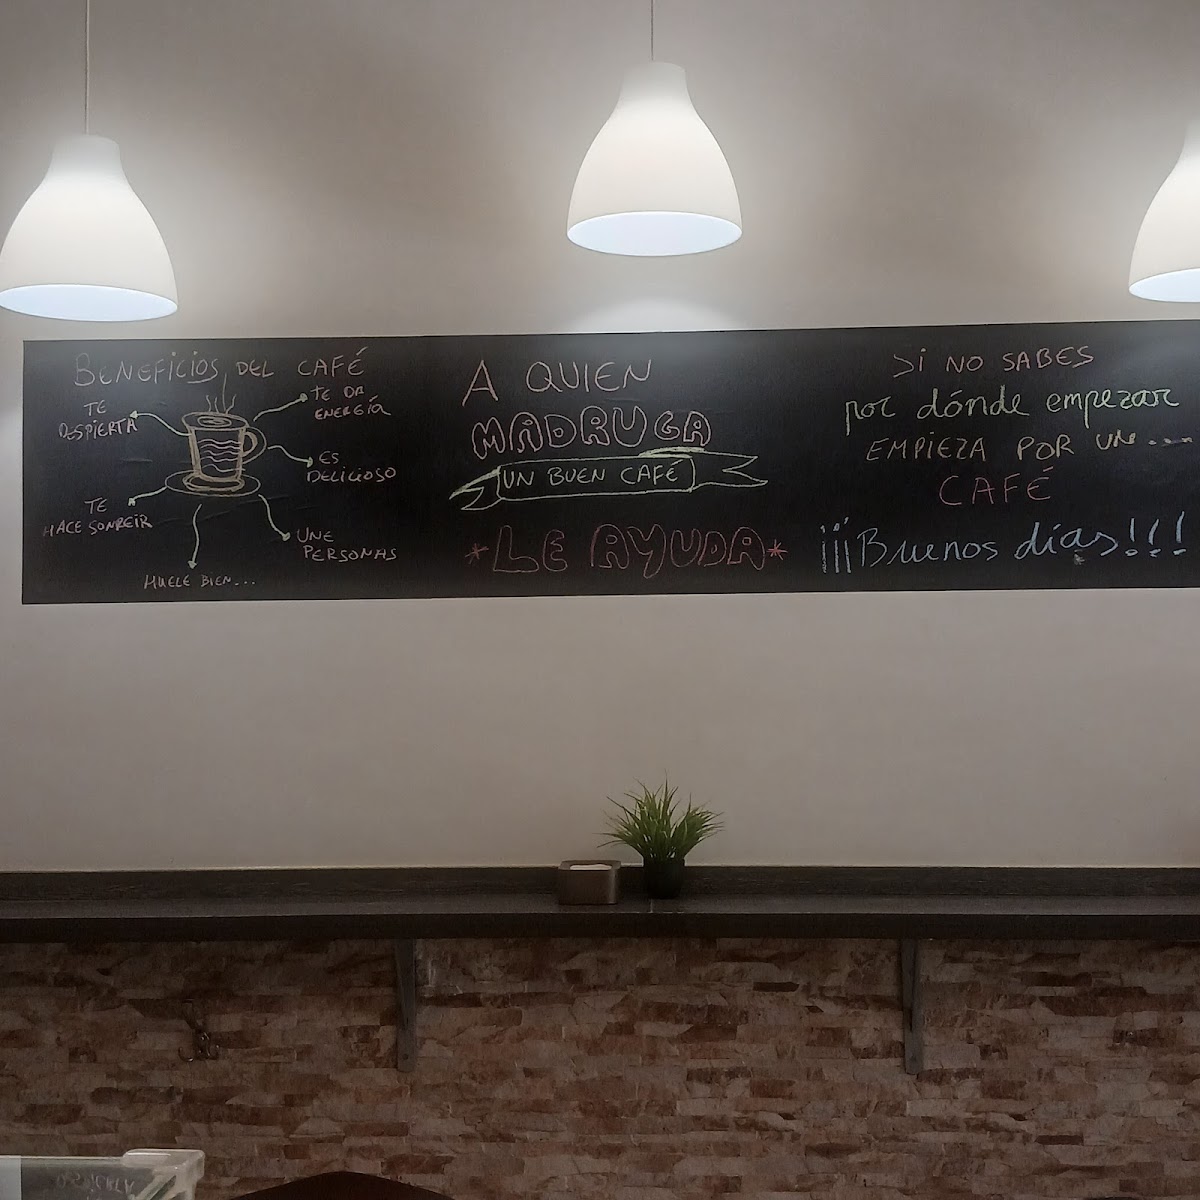 BENEFICIOS DEL CAFÉ
TE
DESPIERTA
TE DA
ENERGÍA
ES
DELICIOSO
TE
HACE SONREIR
UNE
PERSONAS
HUELE BIEN...
A QUIEN
MADRUGA
UN BUEN CAFÉ
*LE AYUDA*
SI NO SABES
por dónde empezar
EMPIEZA POR UN....
CAFÉ
¡¡¡Buenos días!!!